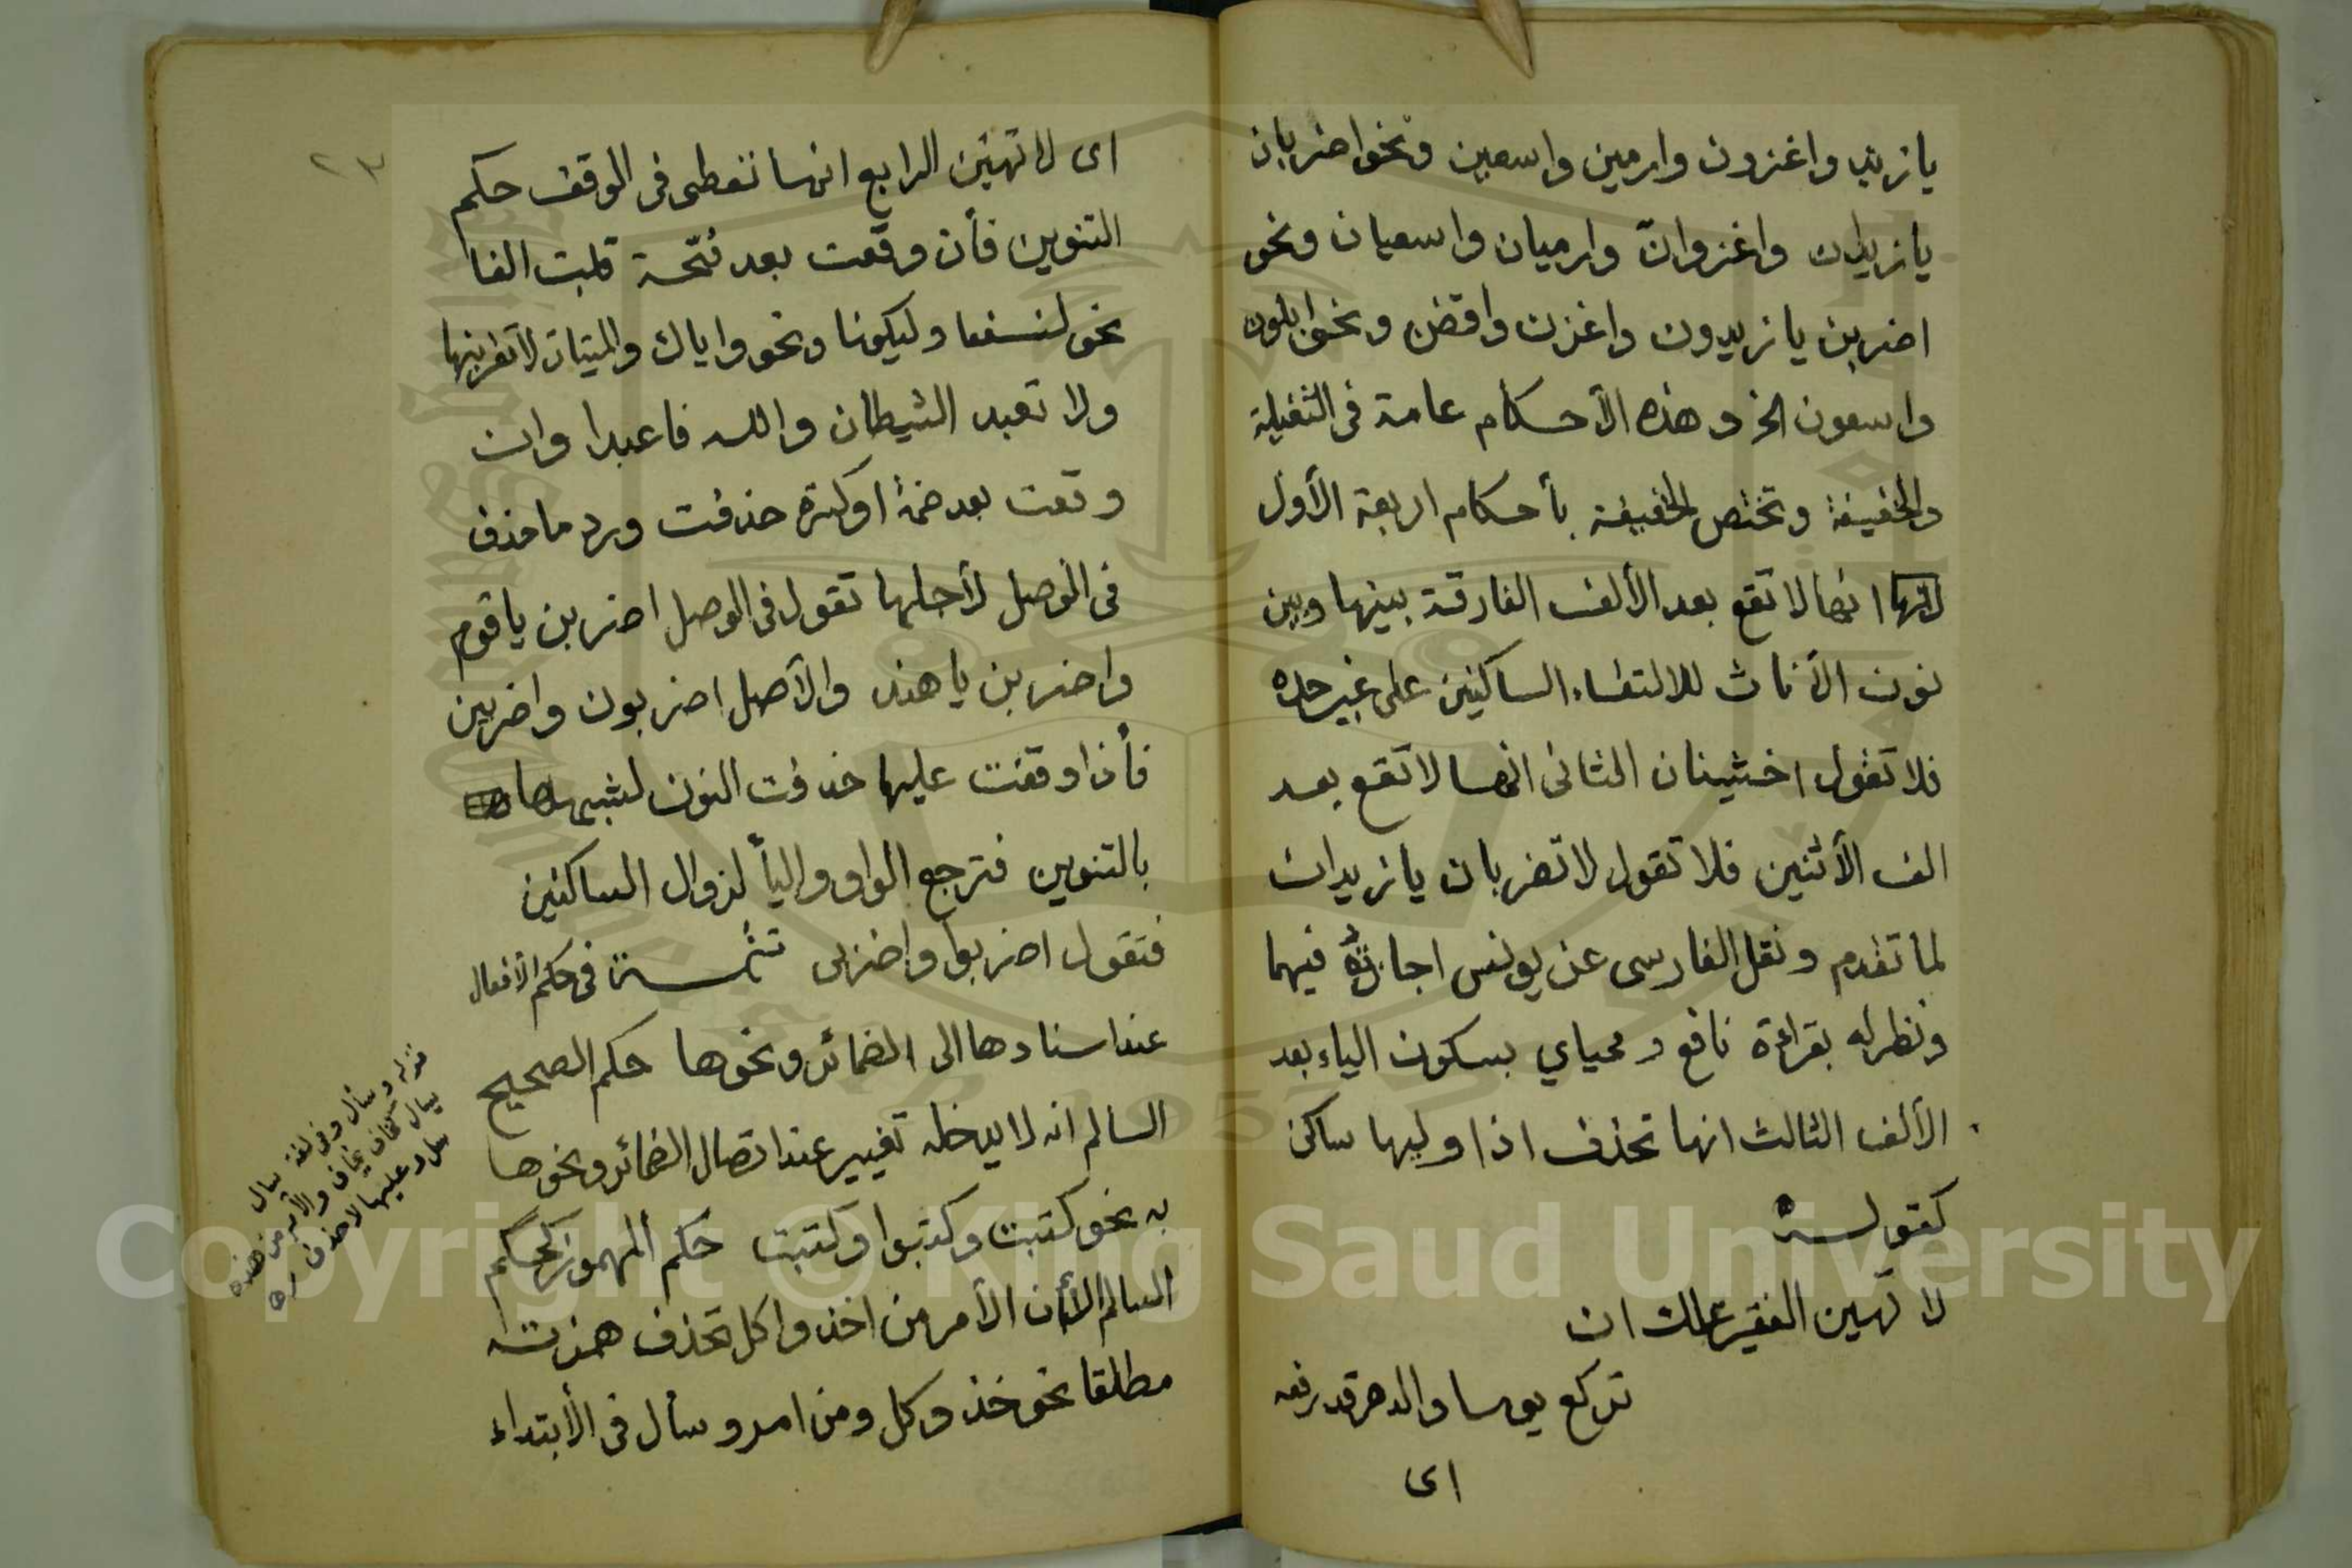 يا زيد واغزون وارمين واسعين ونحو اضربان
يا زيدان واغزوانّ وارميان واسعيان ونحو
اضربن يا زيدون واغزن واقضن ونحو ابلون
واسعون الخ وهذه الأحكام عامة فى الثقيلة
والخفيفة وتختص الخفيفة بأحكام اربعة الأول
انها لا تقع بعد الألف الفارقة بينها وبين
نون الأناث للالتقاء الساكنين على غير حده
فلا تقول اخشينان الثانى انها لا تقع بعد
الف الأثنين فلا تقول لا تضربان يا زيدان
لما تقدم ونقل الفارسى عن يونس اجازته فيهما
ونظر له بقراءة نافع ومحياي بسكون الياء بعد
الألف الثالث انها تحذف اذا وليها ساكن
كقوله
لا تهين الفقير علك ان
تركع يوما والدهر قد رفعه
اى
٢٣
اى لا تهنين الرابع انها تعطى فى الوقف حكم
التنوين فأن وقعت بعد فتحة قلبت الفا
نحو لنسفعا وليكونا ونحو واياك والميتات لا تقربنها
ولا تعبد الشيطان والله فاعبدا وان
وقعت بعد ضمة او كسرة حذفت ورد ما حذف
فى الوصل لأجلها تقول فى الوصل اضربن يا قوم
واضربن يا هند والأصل اضربون واضربين
فأذا وقفت عليها حذفت النون لشبهها
بالتنوين فترجع الواو واليأ لزوال الساكنين
فتقول اضربوا واضربى تتمة فى حكم الأفعال
عند اسنادها الى الضمائر ونحوها حكم الصحيح
السالم انه لا يدخله تغيير عند اتصال الضمائر ونحوها
به نحو كتبت وكتبوا وكتبت حكم المهموز كحكم
السالم الا أن الأمر من اخذ واكل تحذف همزته
مطلقا نحو خذ وكل ومن امر وسأل فى الأبتداء
قوله وسأل وفى لغة سال
يسال كخاف يخاف والأمر من هذه
سل وعليها لا حذف